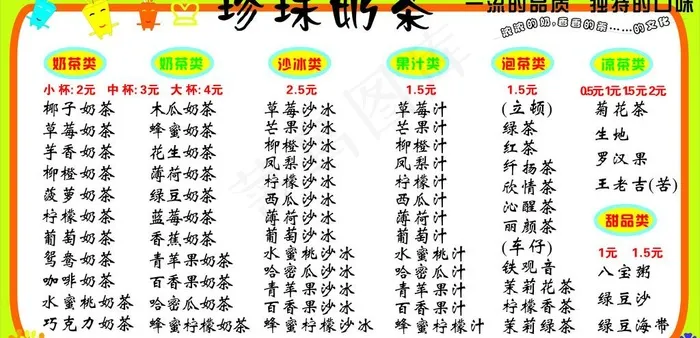 珍珠奶茶
一流的品质 独特的口味
浓浓的奶,香香的茶……的文化
奶茶类
小杯:2元 中杯:3元 大杯:4元
椰子奶茶
草莓奶茶
芋香奶茶
柳橙奶茶
菠萝奶茶
柠檬奶茶
葡萄奶茶
鸳鸯奶茶
咖啡奶茶
水蜜桃奶茶
巧克力奶茶
奶茶类
木瓜奶茶
蜂蜜奶茶
花生奶茶
薄荷奶茶
绿豆奶茶
蓝莓奶茶
香蕉奶茶
青苹果奶茶
百香果奶茶
哈密瓜奶茶
蜂蜜柠檬奶茶
沙冰类
2.5元
草莓沙冰
芒果沙冰
柳橙沙冰
凤梨沙冰
柠檬沙冰
西瓜沙冰
薄荷沙冰
葡萄沙冰
水蜜桃沙冰
哈密瓜沙冰
青苹果沙冰
百香果沙冰
蜂蜜柠檬沙冰
果汁类
1.5元
草莓汁
芒果汁
柳橙汁
凤梨汁
柠檬汁
西瓜汁
薄荷汁
葡萄汁
水蜜桃汁
哈密瓜汁
青苹果汁
百香果汁
蜂蜜柠檬汁
泡茶类
1.5元
(立顿)
绿茶
红茶
纤扬茶
欣情茶
沁醒茶
丽颜茶
(车仔)
铁观音
茉莉花茶
柠檬香茶
茉莉绿茶
流茶类
0.5元1元1.5元2元
菊花茶
生地
罗汉果
王老吉(苦)
甜品类
1元 1.5元
八宝粥
绿豆沙
绿豆海带